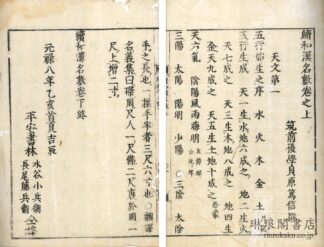 續和漢名數卷之上
筑前後學貝原篤信編
天文第一
五行始生之序 水 火 木 金 土
五行生成 天一生水地六成之 地二生火
天七成之 天三生木地八成之 地四生
金天九成之 天五生土地十成之
天六氣 陰陽風雨晦明
三陽 太陽 陽明 少陽 ○三陰 太陰
手之長也 一探手半者三尺六寸也
名義集曰磔周尺人一尺佛二尺唐於周一
尺上增二寸
續和漢名數卷下終
元祿八年乙亥首夏吉衰
平安書林 永谷小兵衞
長尾藤兵衞 仝梓
琳琅閣書店
rinrokaku.co.jp